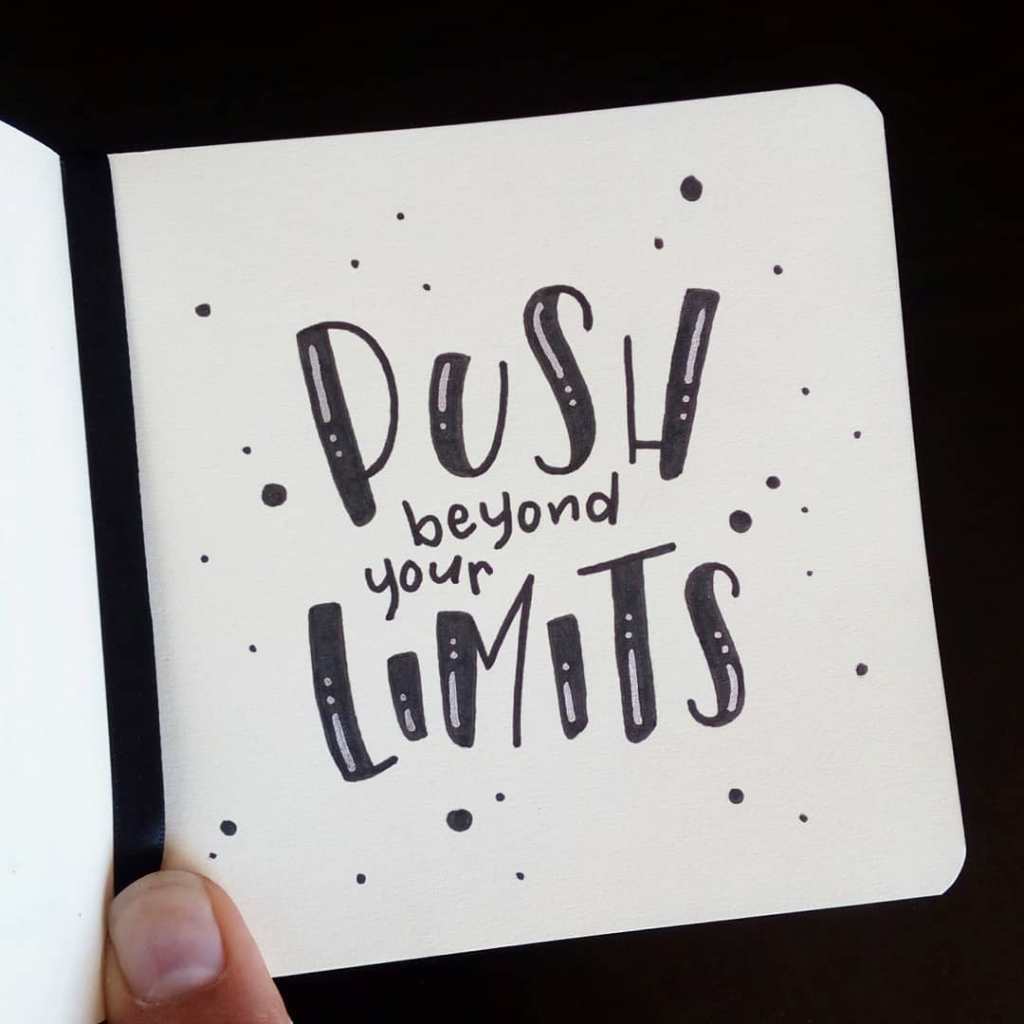 PUSH
beyond
your
LiMiTS